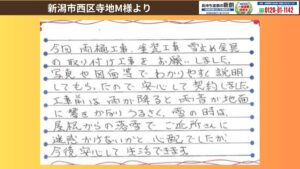 新潟市西区寺地M様より
0120-81-1142
今回 雨樋工事、塗装工事 雪止め金具
の取り付け工事を お願いしました。
写真や図面等で わかりやすく説明
してもらったので 安心して契約しました。
工事前は 雨が降ると 雨音が地面
に響き かなりうるさく、雪の時は、
屋根からの落雪で ご近所さんに
迷惑がかからないか 心配でしたが
今後 安心して 生活できます。